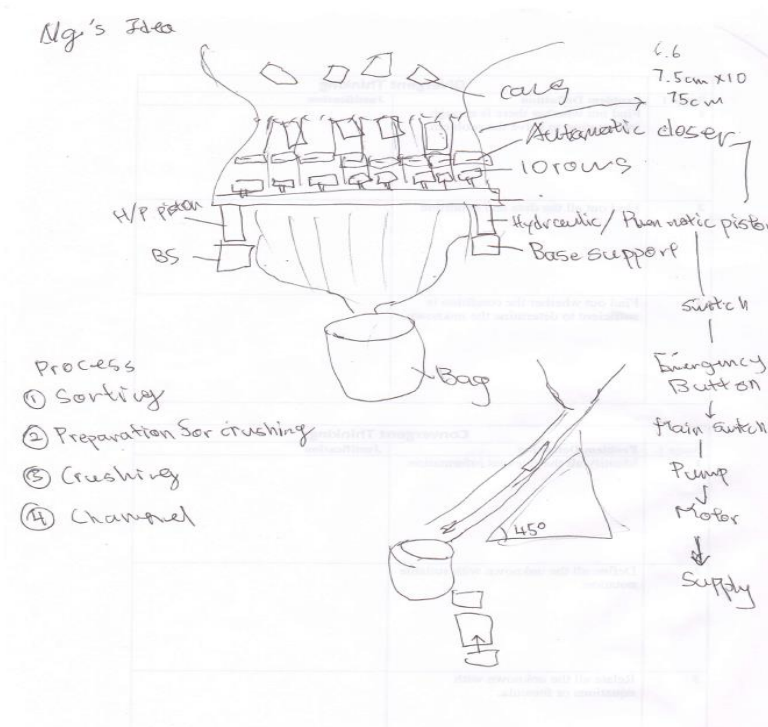 Ng's Idea
6.6
7.5cm x10
75cm
cans
Automatic closer
10 rows
H/P piston
Hydraulic / Pnumnotic piston
BS
Base support
Switch
Emergency
Button
Main Switch
Pump
Motor
Supply
Bag
Process
① Sorting
② Preparation for crushing
③ Crushing
④ Channel
45°